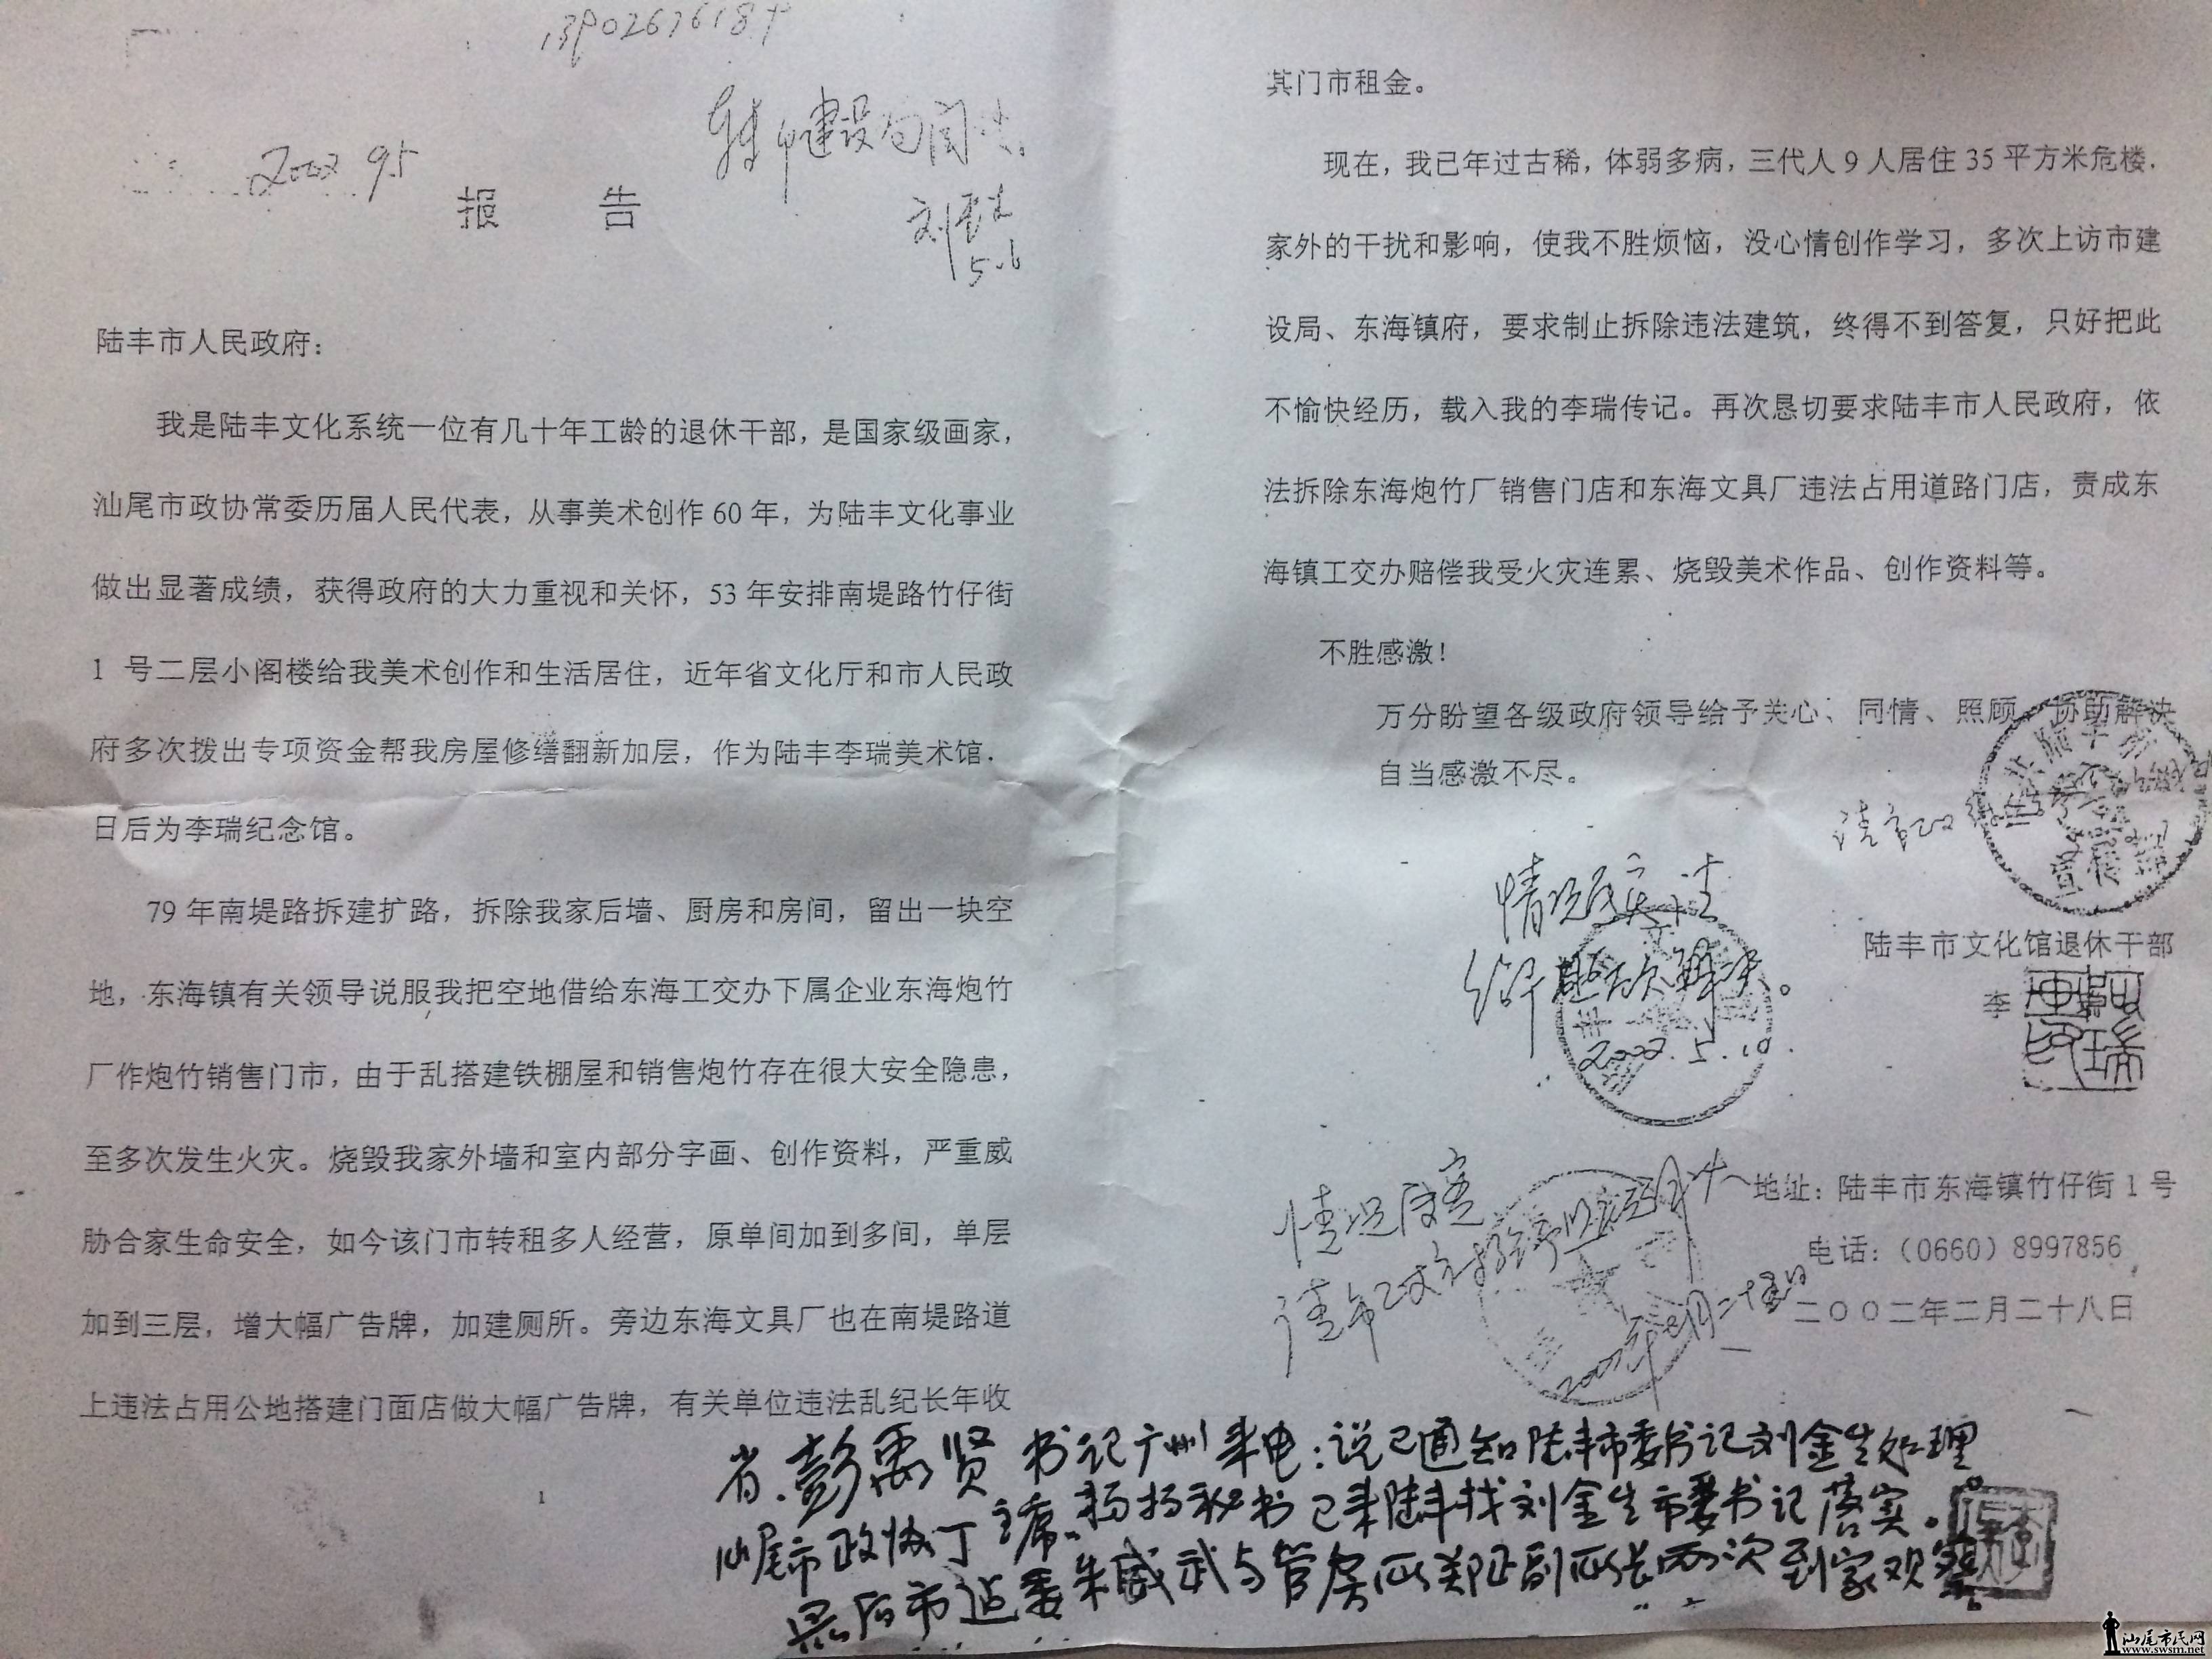 2002 9.5
报 告
刘
5.6
陆丰市人民政府：
我是陆丰文化系统一位有几十年工龄的退休干部，是国家级画家，
汕尾市政协常委历届人民代表，从事美术创作60年，为陆丰文化事业
做出显著成绩，获得政府的大力重视和关怀，53年安排南堤路竹仔街
1 号二层小阁楼给我美术创作和生活居住，近年省文化厅和市人民政
府多次拨出专项资金帮我房屋修缮翻新加层，作为陆丰李瑞美术馆．
日后为李瑞纪念馆。
79年南堤路拆建扩路，拆除我家后墙、厨房和房间，留出一块空
地，东海镇有关领导说服我把空地借给东海工交办下属企业东海炮竹
厂作炮竹销售门市，由于乱搭建铁棚屋和销售炮竹存在很大安全隐患，
至多次发生火灾。烧毁我家外墙和室内部分字画、创作资料，严重威
胁合家生命安全，如今该门市转租多人经营，原单间加到多间，单层
加到三层，增大幅广告牌，加建厕所。旁边东海文具厂也在南堤路道
上违法占用公地搭建门面店做大幅广告牌，有关单位违法乱纪长年收
1
其门市租金。
现在，我已年过古稀，体弱多病，三代人9人居住35平方米危楼．
家外的干扰和影响，使我不胜烦恼，没心情创作学习，多次上访市建
设局、东海镇府，要求制止拆除违法建筑，终得不到答复，只好把此
不愉快经历，载入我的李瑞传记。再次恳切要求陆丰市人民政府，依
法拆除东海炮竹厂销售门店和东海文具厂违法占用道路门店，责成东
海镇工交办赔偿我受火灾连累、烧毁美术作品、创作资料等。
不胜感激！
万分盼望各级政府领导给予关心、同情、照顾，协助解决
自当感激不尽。
情况属实，请
给予 解决。
2002.5.10
陆丰市文化馆退休干部
李
情况属实
地址：陆丰市东海镇竹仔街1号
电话：（0660）8997856
二〇〇二年二月二十八日
省．彭禹贤 书记广州来电：说已通知陆丰市委书记刘金生处理
汕尾市政协丁主席。杨扬秘书已来陆丰找刘金生市委书记落实。
最后市 委朱威武与管房所郑 副所长两次到家观察
汕尾市民网
www.swsm.net